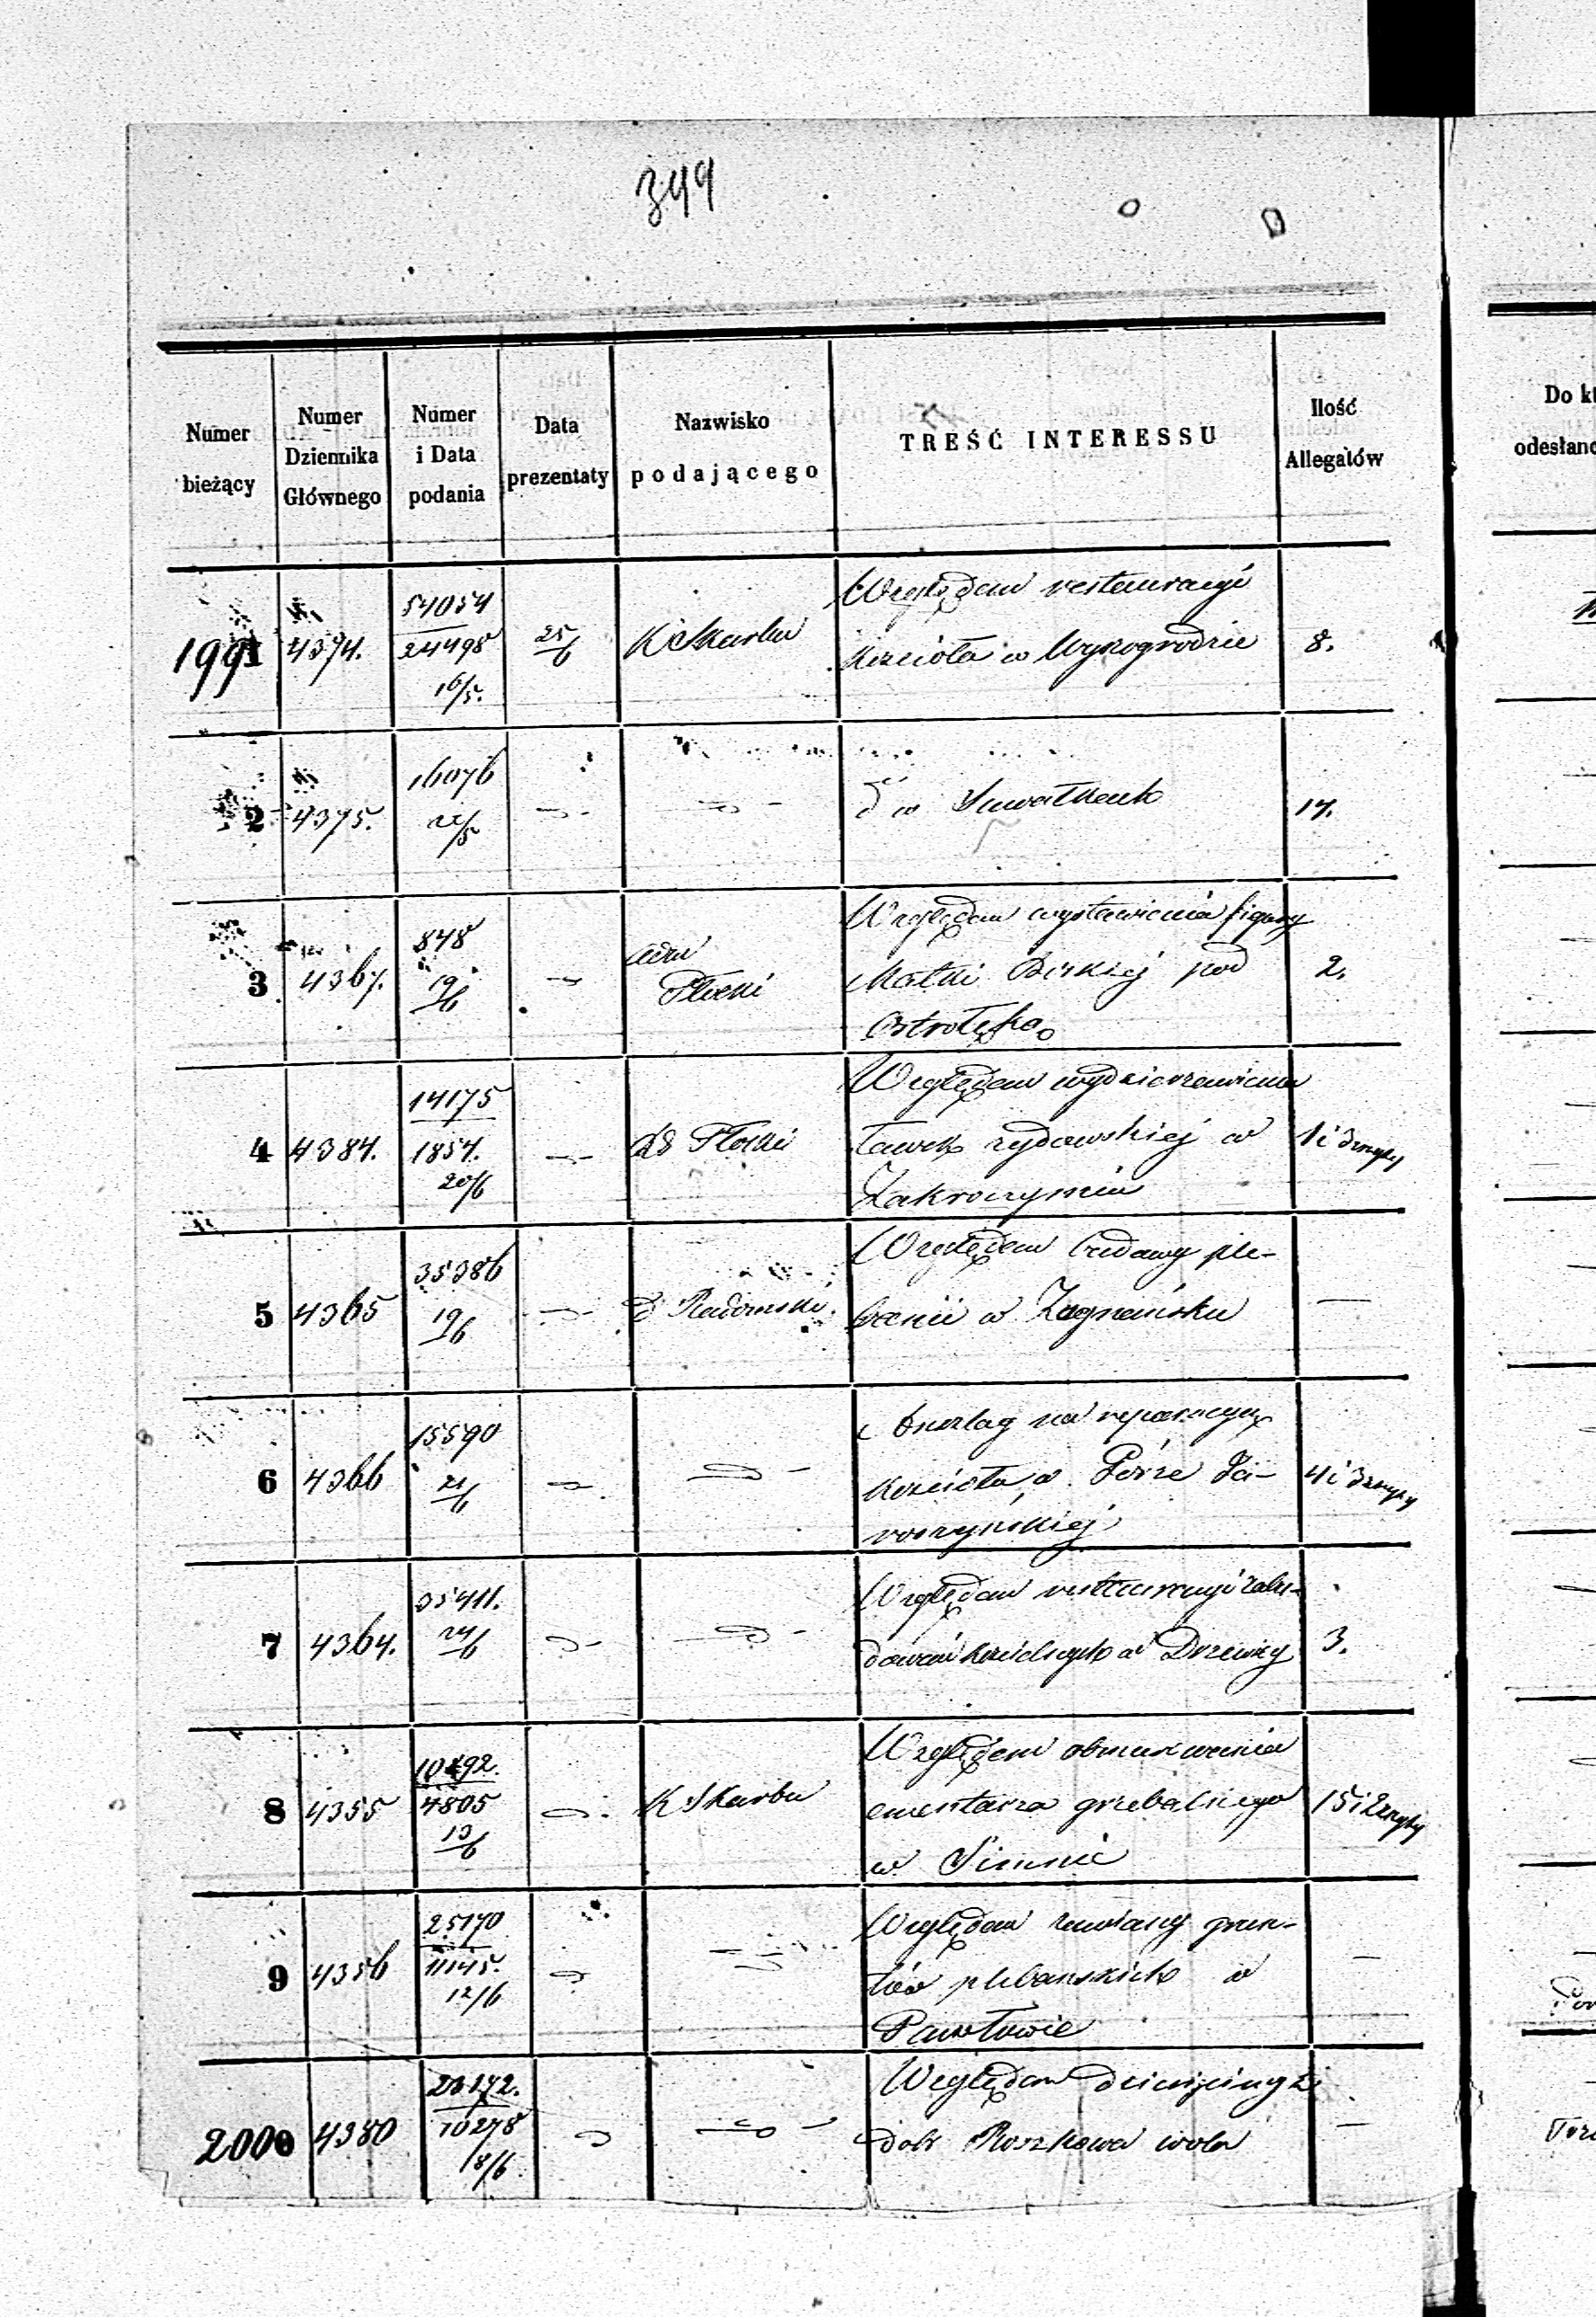 349
Numer bieżący
Numer Dziennika Głównego
Numer i Data podania
Data prezentaty
Nazwisko podającego
TREŚĆ INTERESSU
Ilość Allegatów
Do kt
odesłano
1991 4374. 54054 25/6 K Skarbu Względem restauracyi 8.
24498 kościoła w Wyszogrodzie
16/5.
2 4375. 16076 d° w Suwałkach 17.
22/5
3 4367. 848 Względem wystawienia figury 2.
19/6 Płocki Matki Boskiej pod
Ostrołęką
4 4384. 14175 Płocki Względem wydzierżawienia 1 i 3
1854. ławek żydowskiej w
20/6 Zakroczymiu
5 4365 35386 d° Radomski Względem budowy ple- —
19/6 banii w Zagnańsku
6 4366 15590 Anszlag na reparacyą 4 i 3
21/6 kościoła w Górze Ja-
roszyńskiej
7 4364. 35411. Względem restauracyi zabu- 3.
24/6 dowań kościelnych w Drzewicy
8 4355 4805 K Skarbu Względem obmurowania 15 i 2
13/6 cmentarza grzebalnego
w Simnie
9 4356 25170 Względem zamiany grun- —
11145. tów plebańskich w
12/6 Pawłowie
2000 4380 10278 Względem dziesięciny z —
18/6 dóbr Roszkowa wola